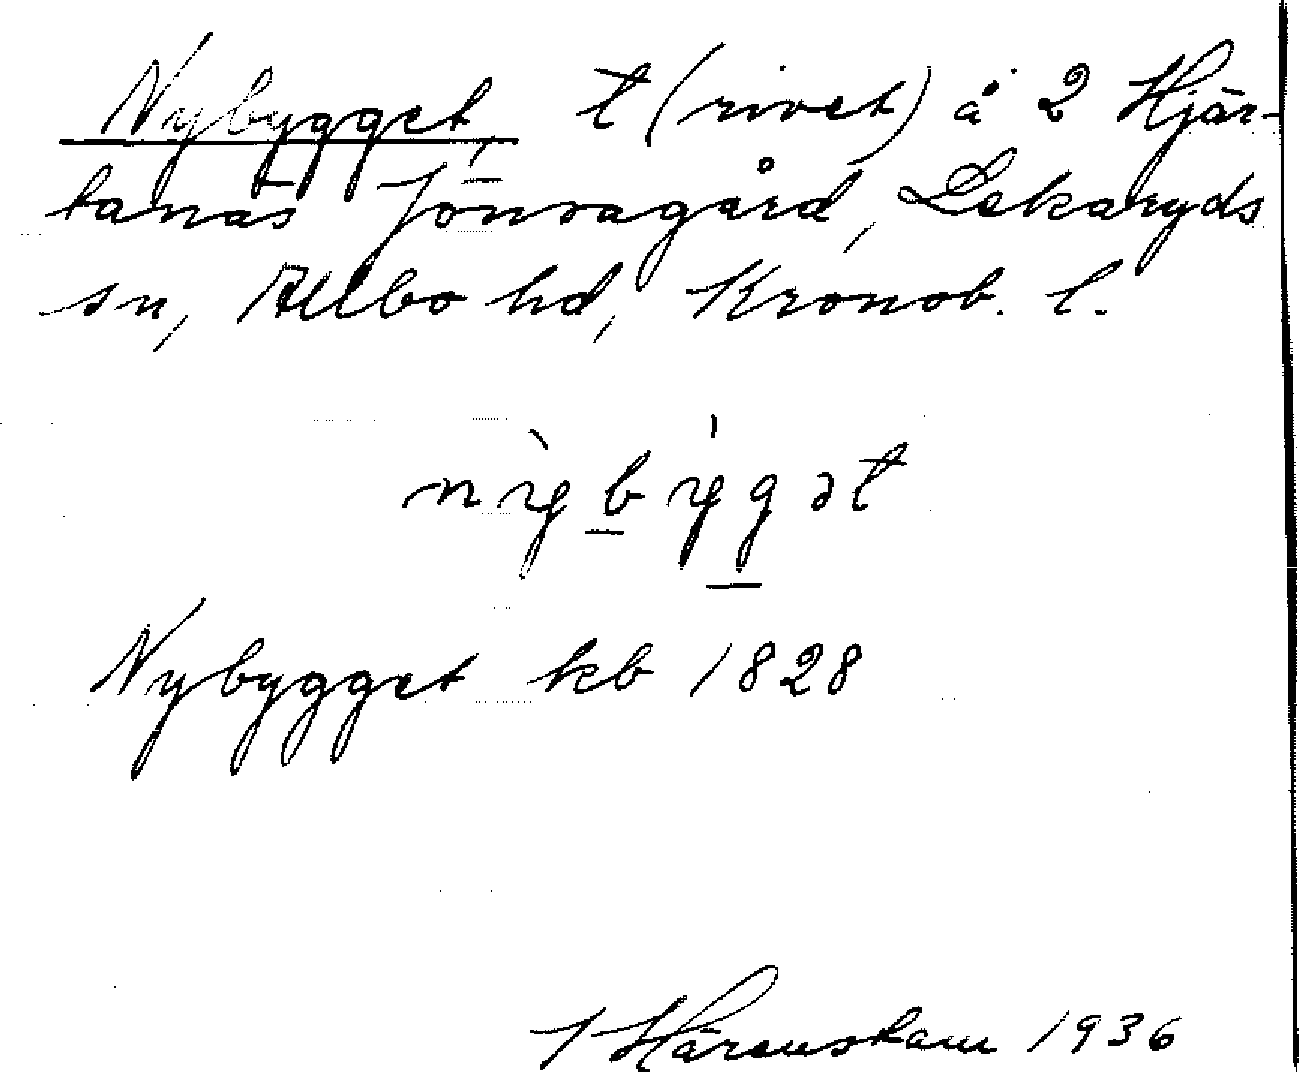 Nybygget, t (rivet) å 2 Hjär-
tanäs Jönsagård, Lekaryds
sn, Allbo hd, Kronob. l.
nỳbýgət
Nybygget kb 1828
J Härenstam 1936